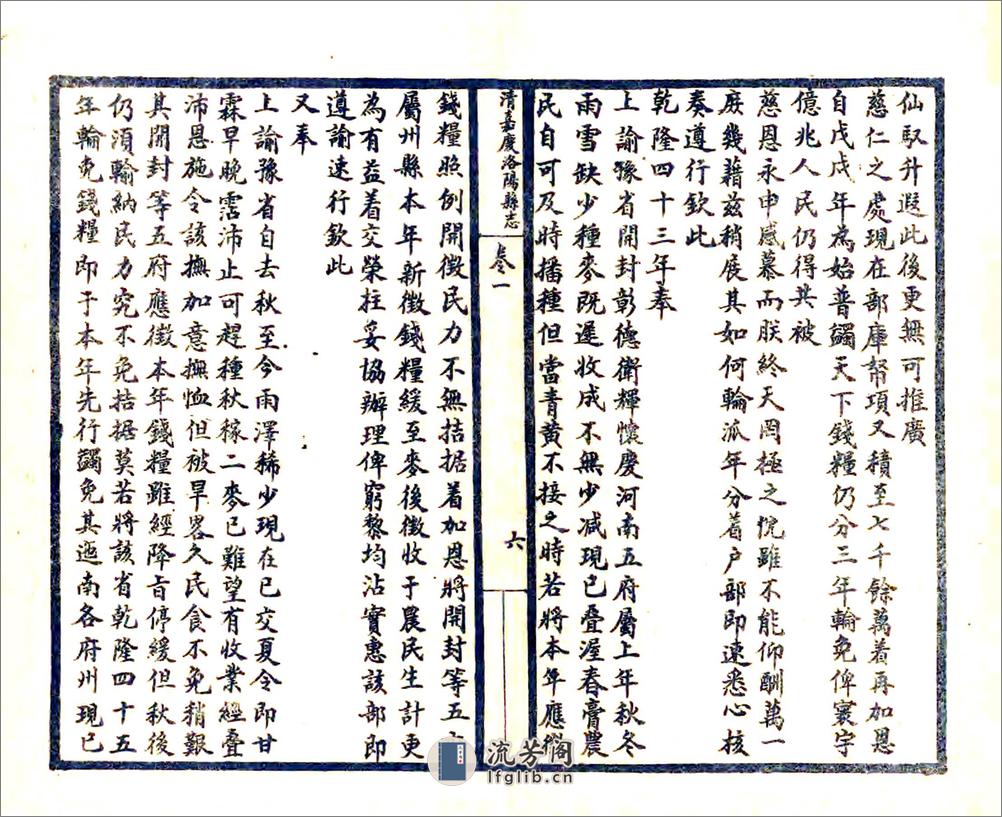 仙馭升遐此後更無可推廣
慈仁之處現在部庫帑項又積至七千餘萬着再加恩
自戊戌年為始普蠲天下錢糧仍分三年輪免俾寰宇
億兆人民仍得共被
慈恩永申感慕而朕終天罔極之忱雖不能仰酬萬一
庶幾藉茲稍展其如何輪派年分着户部即速悉心核
奏遵行欽此
乾隆四十三年奉
上諭豫省開封彰德衛輝懷慶河南五府屬上年秋冬
雨雪缺少種麥既遲收成不無少減現已叠渥春膏農
民自可及時播種但當青黃不接之時若將本年應徵
清嘉慶洛陽縣志
卷一
六
錢糧照例開徵民力不無拮据着加恩將開封等五
屬州縣本年新徵錢糧緩至麥後徵收于農民生計更
為有益着交榮柱妥協辦理俾窮黎均沾實惠該部即
遵諭速行欽此
又奉
上諭豫省自去秋至今雨澤稀少現在已交夏令即甘
霖早晚霑沛止可趕種秋稼二麥已難望有收業經叠
沛恩施令該撫加意撫恤但被旱畧久民食不免稍艱
其開封等五府應徵本年錢糧雖經降旨停緩但秋後
仍須輸納民力究不免拮据莫若將該省乾隆四十五
年輪免錢糧即于本年先行蠲免其迤南各府州現已
流芳阁
lfglib.cn